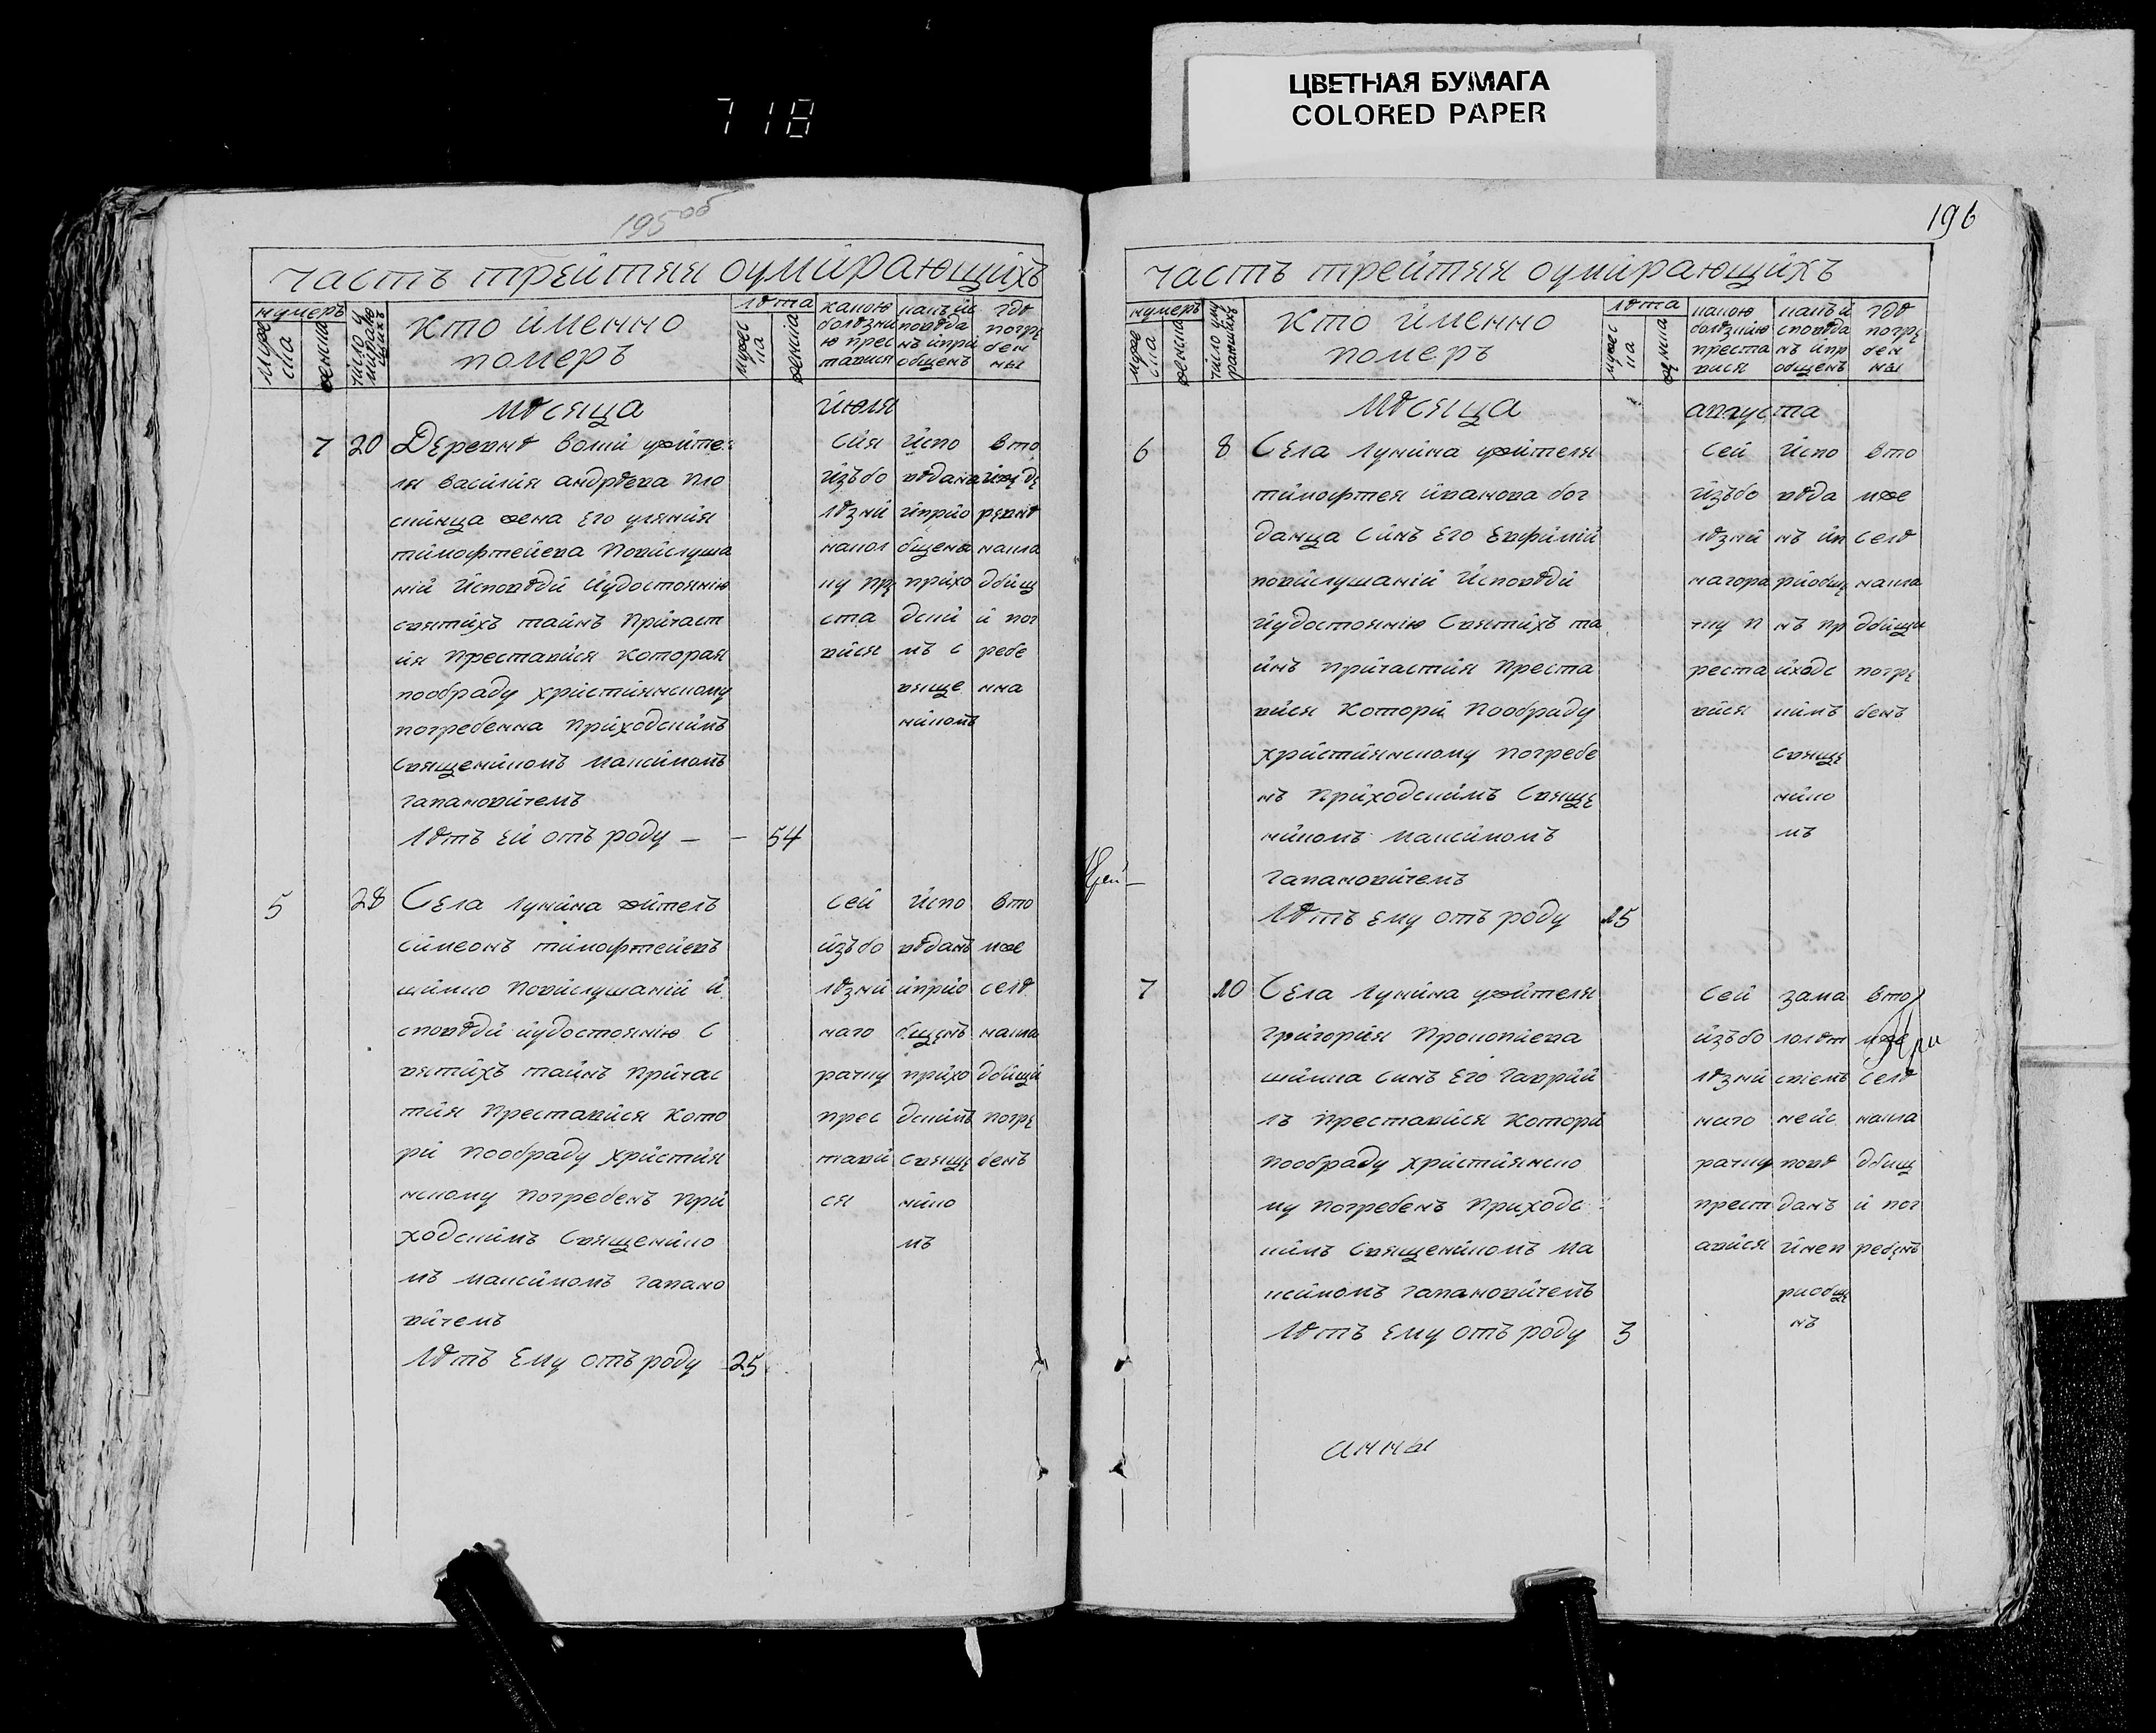 718
ЦВЕТНАЯ БУМАГА
COLORED PAPER
195об
часть трейтяя оумирающихъ
нумеръ
мужеска
женска
число умирающихъ
кто именно
померъ
лѣта
мужеска
женска
какою
болѣзни
ю прес
тавися
какъ й
повѣда
нъ ипри
общенъ
гдѣ
погре
бен
ны
мѣсяца
июля
7 20 Деревнѣ воли жите
ля василия андрѣева пло
скинца жена его уляния
тимофтеева повислуша
ний исповѣди иудостоянию
святихъ таинъ причаст
ия преставися которая
пообраду християнскому
погребенна приходскимъ
священикомъ максимомъ
гапановичемъ
лѣтъ ей отъ роду — — 54
сия
изъбо
лѣзни
накол
ку пре
ста
вися
испо
вѣдана
иприо
бщена
прихо
дски
мъ с
вяще
никомъ
вто
йже де
ревнѣ
накла
дбищ
и пог
ребе
нна
5 28 Села лунина житель
симеонъ тимофтеевъ
шимко повислушаний и
сповѣди иудостоянию с
вятихъ таинъ причас
тия преставися кото
ри пообраду християн
нскому погребенъ при
ходскимъ священико
мъ максимомъ гапано
вичемъ
лѣтъ ему отъ роду 25
сей
изъбо
лѣзни
наго
рачку
прес
тави
ся
испо
вѣданъ
иприо
бщенъ
прихо
дскимъ
свяще
нико
мъ
вто
мже
селѣ
накла
дбищи
погре
бенъ
196
часть трейтяя оумирающихъ
нумеръ
мужеска
женска
число умирающихъ
кто именно
померъ
лѣта
мужеска
женска
какою
болѣзнию
преста
вися
какъ й
сповѣда
нъ ипр
общенъ
гдѣ
погре
бен
ны
мѣсяца
августа
6 8 Села лунина жителя
тимофтея иванова бог
данца синъ его евфимий
повислушаний исповѣди
иудостоянию святихъ та
инъ причастия преста
вися котори пообраду
християнскому погребе
нъ приходскимъ свяще
никомъ максимомъ
гапановичемъ
лѣтъ ему отъ роду 15
сей
изъбо
лѣзни
нагора
чку п
реста
вися
испо
вѣда
нъ ип
риобще
нъ пр
иходс
кимъ
свяще
нико
мъ
вто
мже
селѣ
накла
дбищи
погре
бенъ
7 10 Села лунина жителя
григория прокопиева
шимка синъ его гаврии
лъ преставися котори
пообраду християнско
му погребенъ приходс
кимъ священикомъ ма
ксимомъ гапановичемъ
лѣтъ ему отъ роду 3
сей
изъбо
лѣзни
наго
рачку
прест
авися
зама
лолѣт
ствіемъ
неис
повѣ
данъ
инеп
риобще
нъ
вто
мже
селѣ
накла
дбищ
и пог
ребенъ
анны